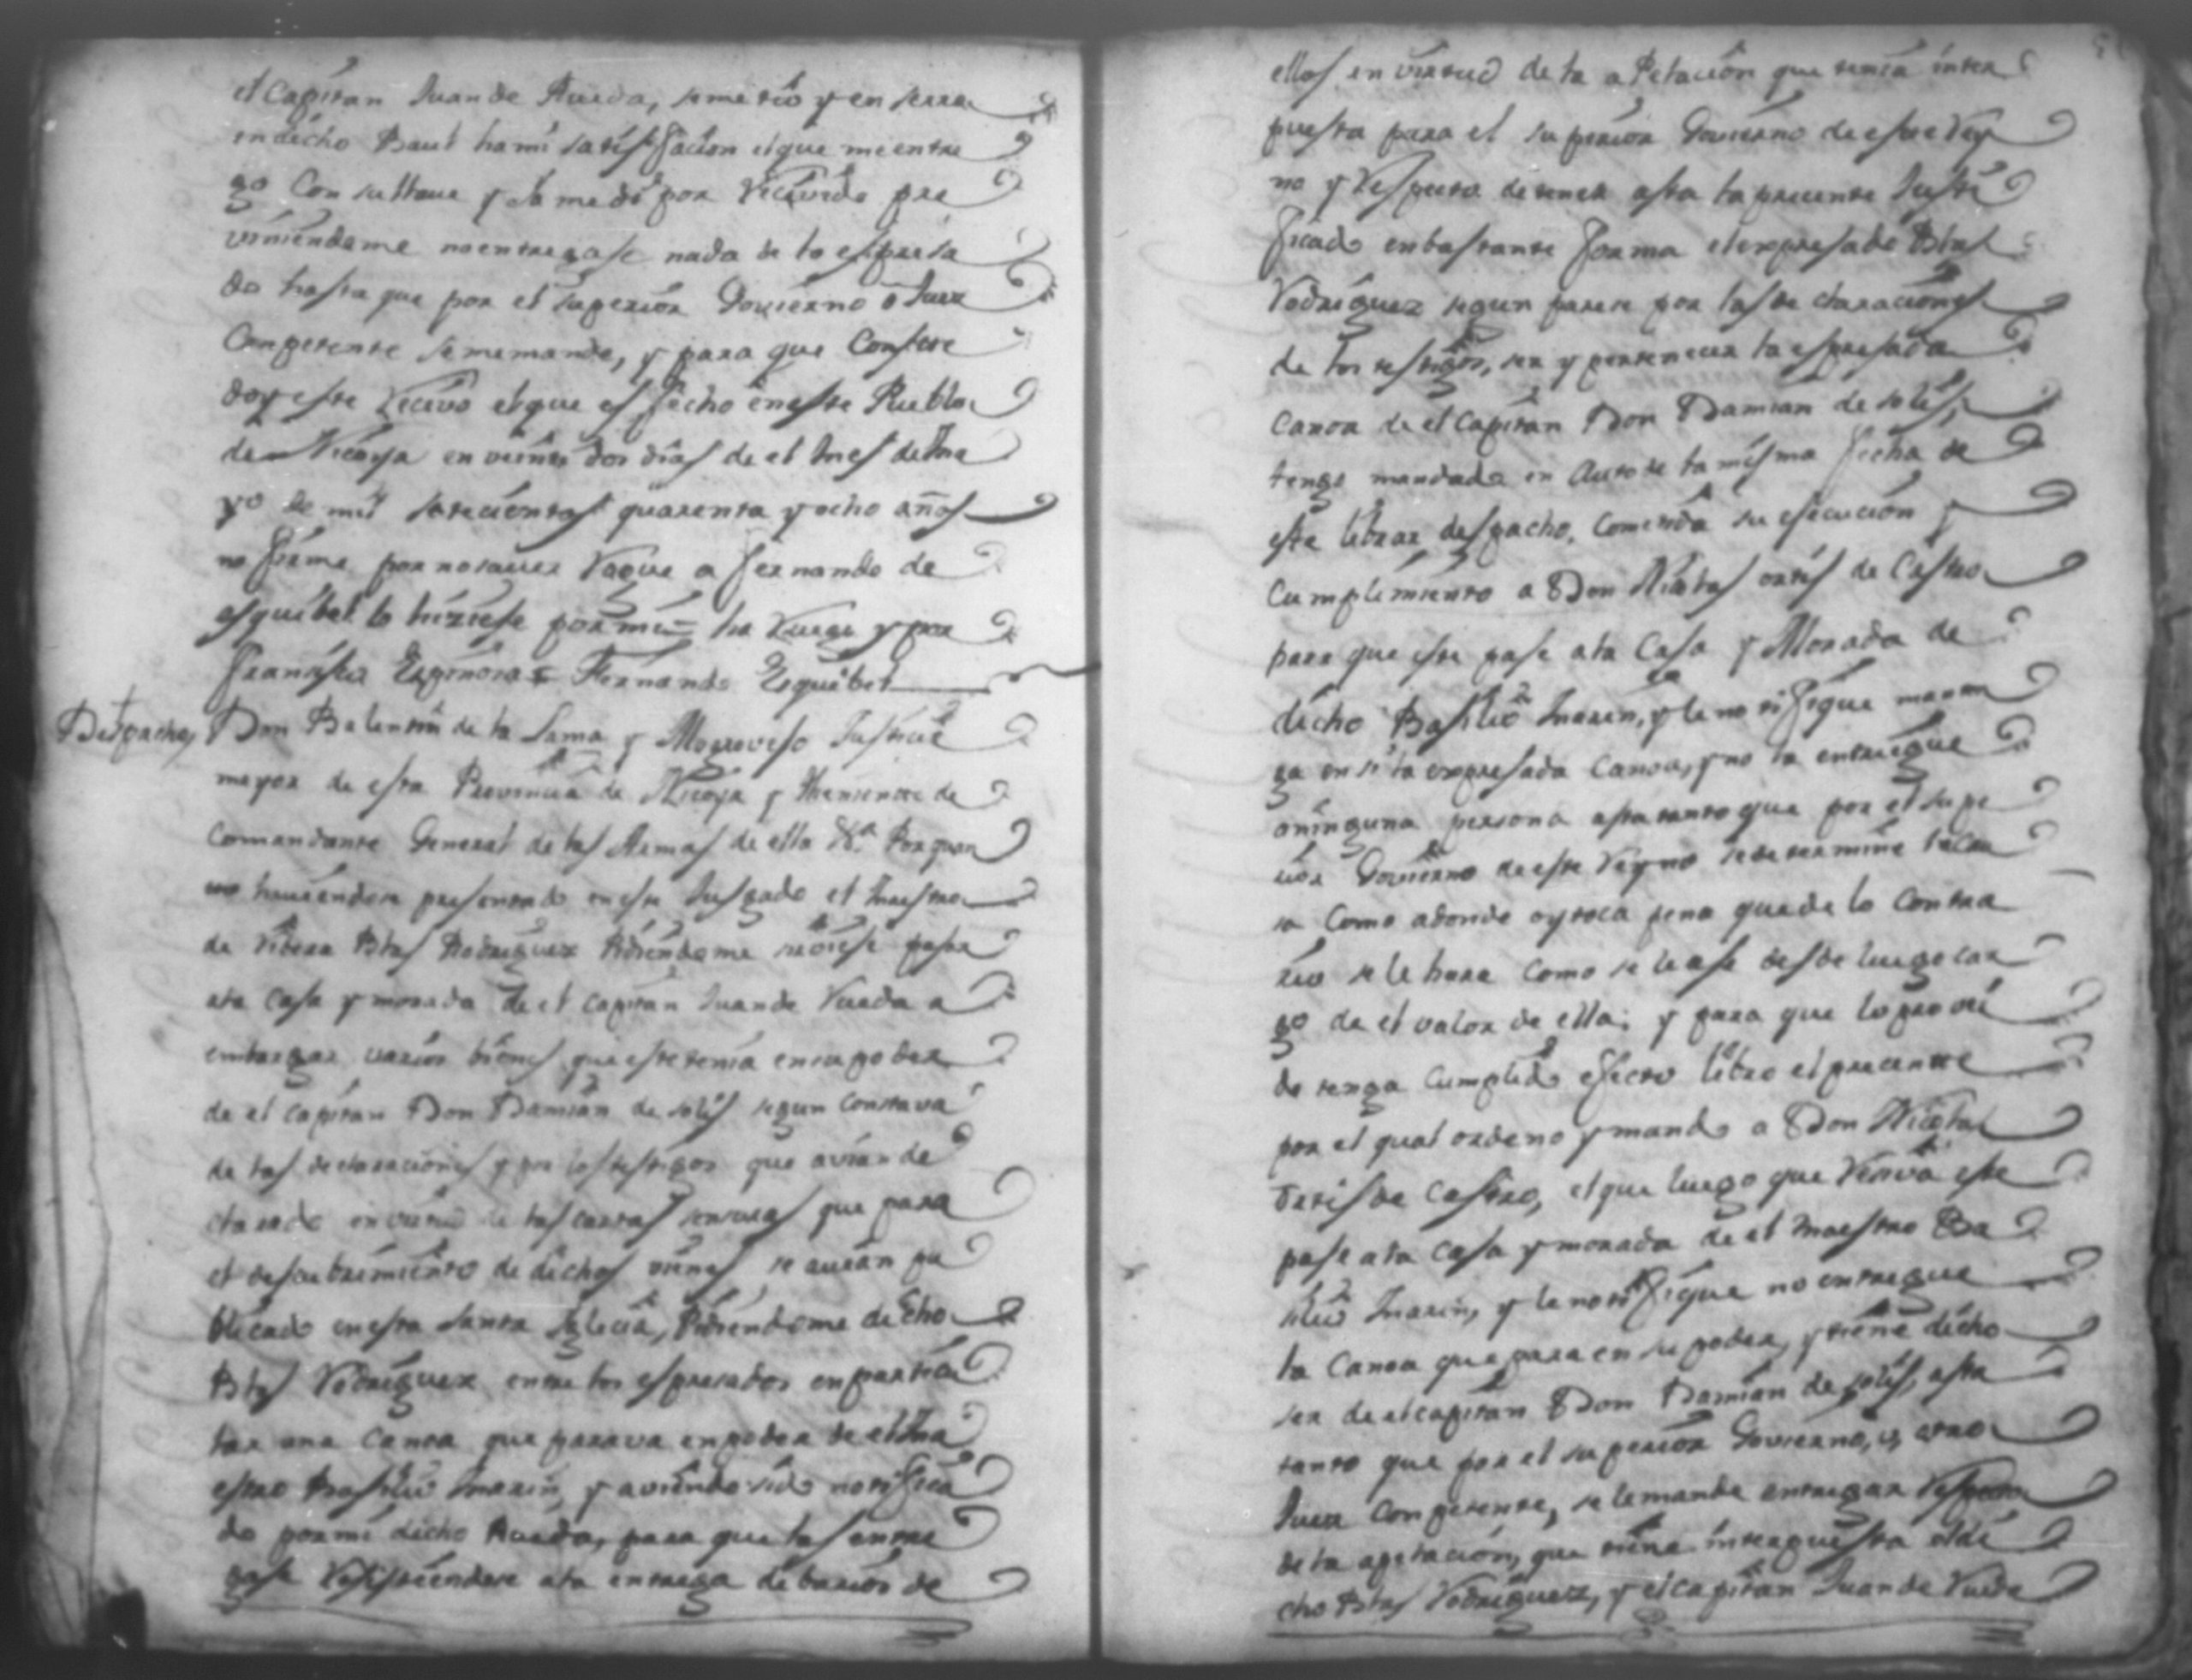 el Capitan Juan de Rueda, se metio y en serra
en dicho Baul ha mi satisfacion el que me entre
go Con su llaue y da me dio por Recivido pre
viniendome no entregase nada de lo espresa
do hasta que por el superior Govierno o Juez
Competente se me mande, y para que Conste
doy este Recivo el que es fecho en este Pueblo
de Nicoya en veinte dos dias de el mes de Ma
yo de mil setecientos quarenta y ocho años
no firme por no saver Rogue a Fernando de
esquibel lo hiziese por mi = ha Ruego y por
Fransisca Espinosa = Fernando Esquibel
Despacho
Don Balentin de la Lama y Mogroveso Justicia
mayor de esta Provincia de Nicoya y Theniente de
Comandante General de las Armas de ella &.ª Por quan
to haviendose presentado en este Jusgado el Maestro
de Ribera Blas Rodriguez Pidiendome se diese pasar
a la Casa y morada de el Capitan Juan de Rueda a
embargar varios bienes que este tenia en su poder
de el Capitan Don Damian de solis segun Constava
de las declaraciones y por los testigos que avian de
clarado en virtud de las cartas sensuras que para
el descubrimiento de dichos vienes se avian pu
blicado en esta Santa Iglecia, Pidiendome dicho
Blas Rodriguez entre los espresados en particu
lar una Canoa que parava en poder de el Ma
estro Basilio Marin, y aviendo sido notifica
do por mi dicho Rueda, para que las entre
gase Resistiendose a la entrega de barios de
ellos en virtud de la a Pelacion que tenia inter
puesta para el superior Govierno de este Rey
no y Respecto de tener asta la precente Justi
ficado en bastante forma el expresado Blas
Rodriguez segun parese por las declaraciones
de los testigos, ser y pertenecer la espresada
Canoa de el Capitan Don Damian de solis,
tengo mandado en Auto de la misma fecha de
este librar despacho, Cometida su esecucion y
Cumplimiento a Don Nicolas ortis de Castro
para que este pase a la Casa y Morada de
dicho Basilio Marin, y le notifique manten
ga en si la expresada Canoa, y no la entregue
a ninguna persona asta tanto que por el supe
rior Govierno de este Reyno se determine
Como adonde oy toca pena que de lo Contra
rio se le hara Como se le ase desde luego car
go de el valor de ella; y para que lo provei
do tenga Cumplido efecto libro el precente
por el qual ordeno y mando a Don Nicolas
Ortis de Castro, el que luego que Reciva este
pase a la Casa y morada de el Maestro Ba
silio Marin, y le notifique no entregue
la Canoa que para en su poder, y tiene dicho
ser de el capitan Don Damian de solis, asta
tanto que por el superior Govierno, u, otro
Juez Competente, se le mande entregar Respecto
de la apelacion, que tiene interpuesta el di
cho Blas Rodriguez, y el Capitan Juan de Rueda